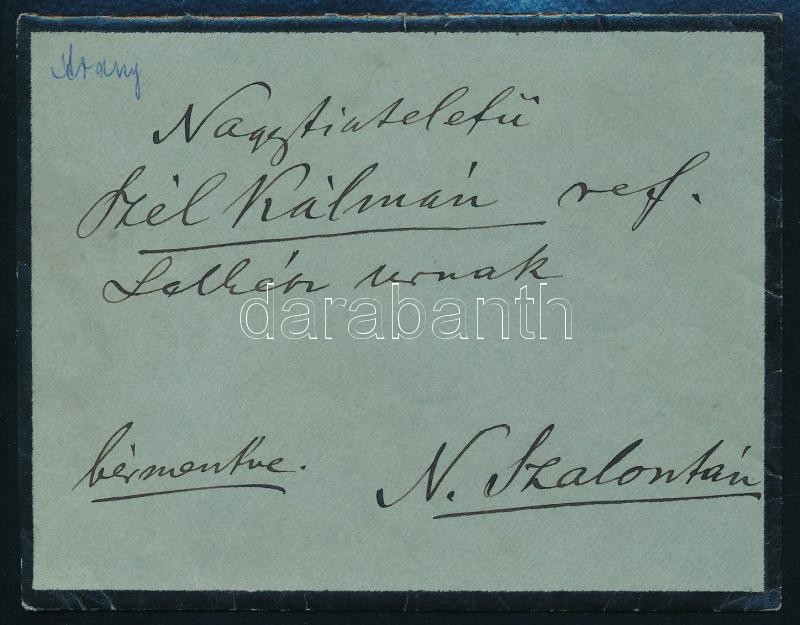 Arany
Nagytiszteletű
Szél Kálmán ref.
Lelkész urnak
darabanth
bérmentve.
N. Szalontán